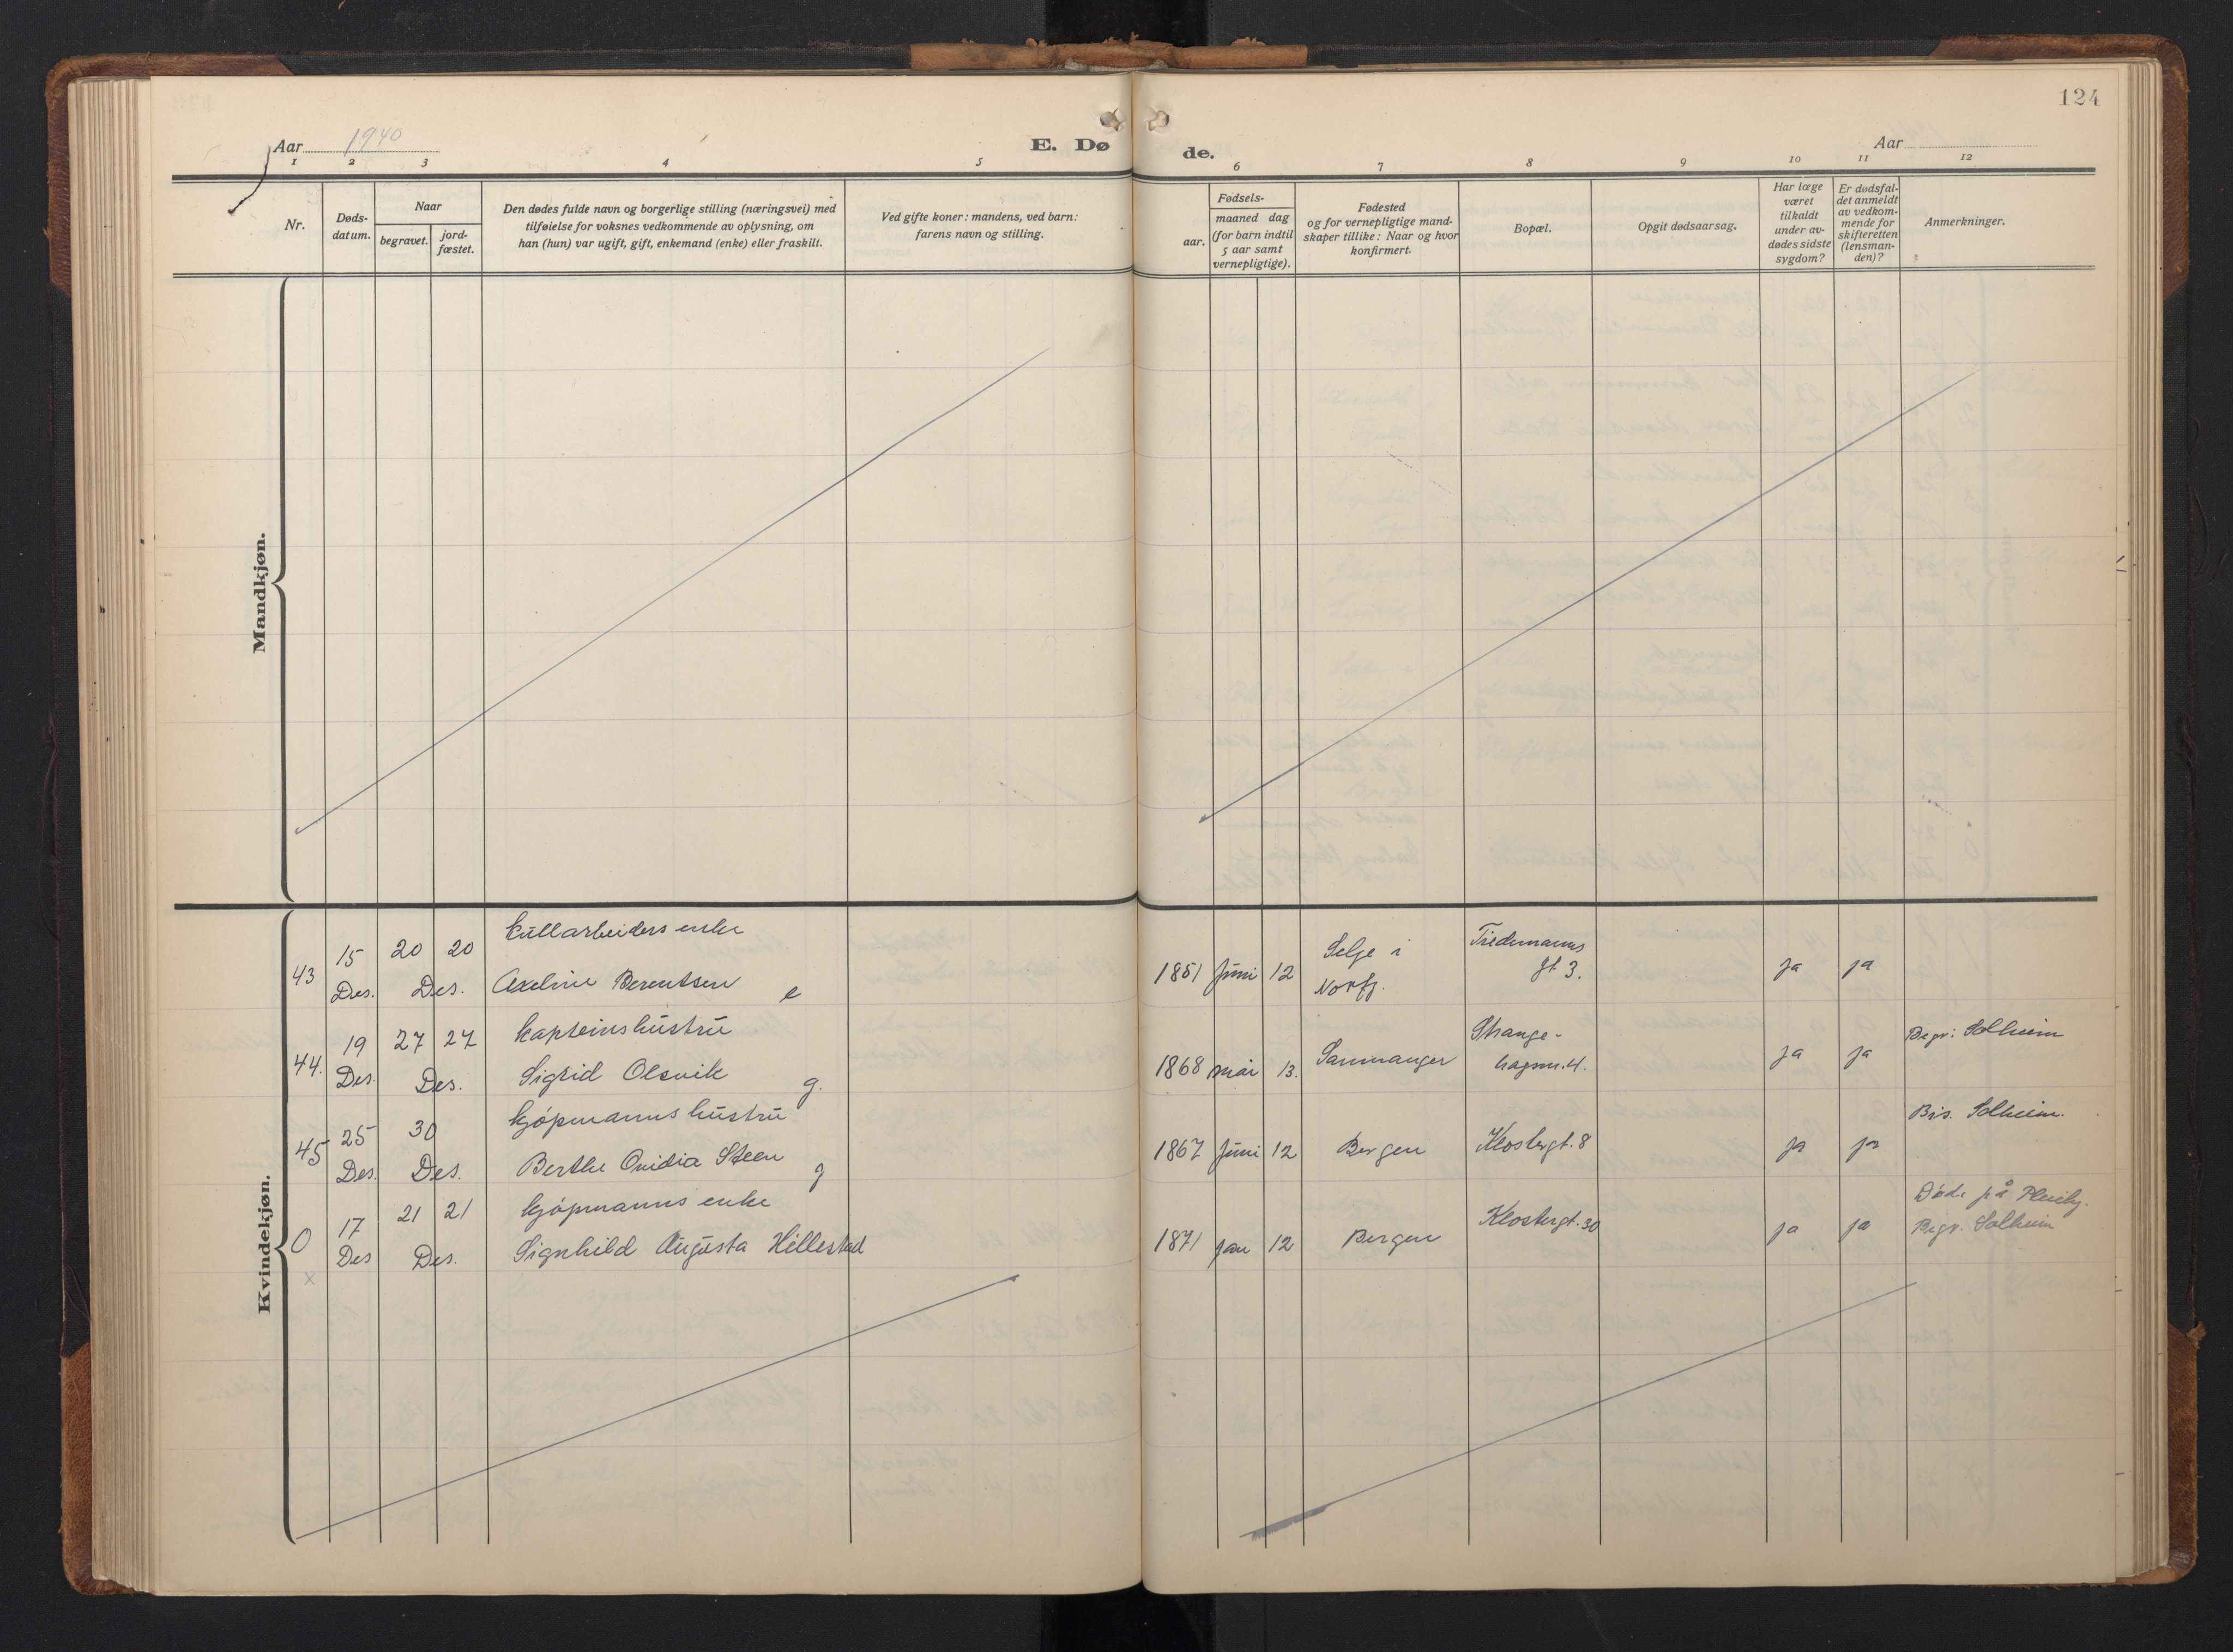 124
Aar 1940
E. Dø
de.
Aar
1 2 3 4 5 6 7 8 9 10 11 12
Nr.
Døds-
datum.
Naar
begravet.
jord-
fæstet.
Den dødes fulde navn og borgerlige stilling (næringsvei) med
tilføielse for voksnes vedkommende av oplysning, om
han (hun) var ugift, gift, enkemand (enke) eller fraskilt.
Ved gifte koner: mandens, ved barn:
farens navn og stilling.
Fødsels-
aar.
maaned dag
(for barn indtil
5 aar samt
vernepligtige).
Fødested
og for vernepligtige mand-
skaper tillike: Naar og hvor
konfirmert.
Bopæl.
Opgit dødsaarsag.
Har læge
været
tilkaldt
under av-
dødes sidste
sygdom?
Er dødsfal-
det anmeldt
av vedkom-
mende for
skifteretten
(lensman-
den)?
Anmerkninger.
Mandkjøn.
Kvindekjøn.
43 15 Des. 20 20 Des.
kullarbeiders enke
Axeline Berentsen e
1851 Juni 12
Selje i
Nordfj.
Tidemanns
gt 3.
ja ja
44. 19 Des. 27 27 Des.
kapteins hustru
Sigrid Olsvik g.
1868 mai 13.
Samnanger
Strange-
hagen. 4.
ja ja
Begr: Solheim
45 25 Des. 30 Des.
kjøpmanns hustru
Berthe Ovidia Steen g
1867 Juni 12
Bergen
Klostergt. 8
ja ja
Bis. Solheim.
0 17 Des 21 21 Des.
x
kjøpmanns enke
Signhild Augusta Hillestad
1871 jan 12
Bergen
Klostergt. 30
ja ja
Døde på Pleiehj.
Begr. Solheim